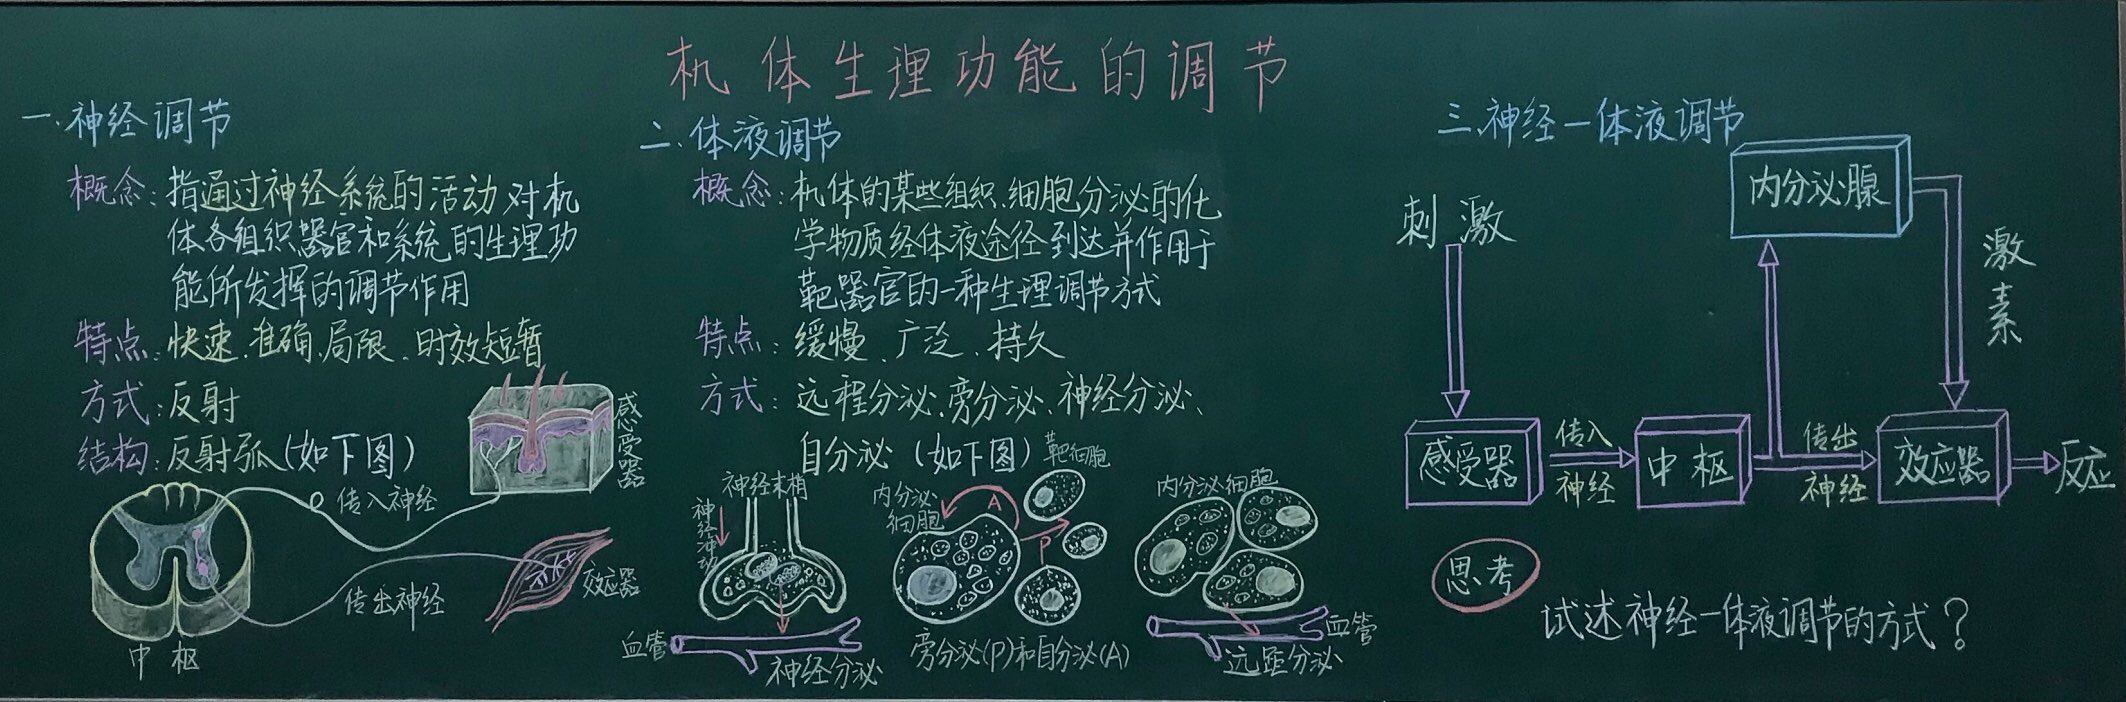 机体生理功能的调节
一.神经调节
概念:指通过神经系统的活动对机
体各组织器官和系统的生理功
能所发挥的调节作用
特点:快速、准确、局限、时效短暂
方式:反射
结构:反射弧(如下图)
感受器
传入神经
传出神经
效应器
中枢
二.体液调节
概念:机体的某些组织、细胞分泌的化
学物质经体液途径到达并作用于
靶器官的一种生理调节方式
特点:缓慢、广泛、持久
方式:远程分泌、旁分泌、神经分泌、
自分泌(如下图)
神经末梢
神经冲动
血管
神经分泌
内分泌
细胞
靶细胞
A
P
旁分泌(P)和自分泌(A)
内分泌细胞
血管
远距分泌
三.神经一体液调节
内分泌腺
刺激
激素
感受器
传入
神经
中枢
传出
神经
效应器
反应
思考
试述神经一体液调节的方式?